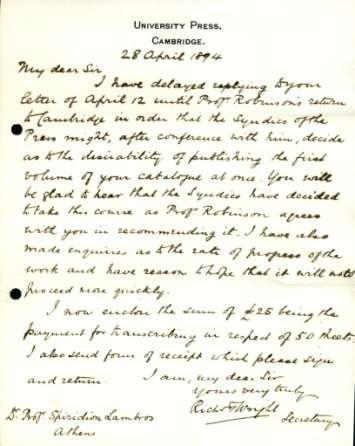 University Press,
Cambridge.
28 April 1894
My dear Sir
I have delayed replying to your
letter of April 12 until Profr Robinson's return
to Cambridge in order that the Syndics of the
Press might, after conference with him, decide
as to the desirability of publishing the first
volume of your catalogue at once. You will
be glad to hear that the Syndics have decided
to take this course as Profr Robinson agrees
with you in recommending it. I have also
made enquiries as to the rate of progress of the
work and have reason to hope that it will
proceed more quickly.
I now enclose the sum of £25 being the
payment for transcribing in respect of 50 sheets.
I also send form of receipt which please sign
and return. I am, my dear Sir
Yours very truly
Wright
Secretary
Dr Profr Spiridion Lambros
Athens